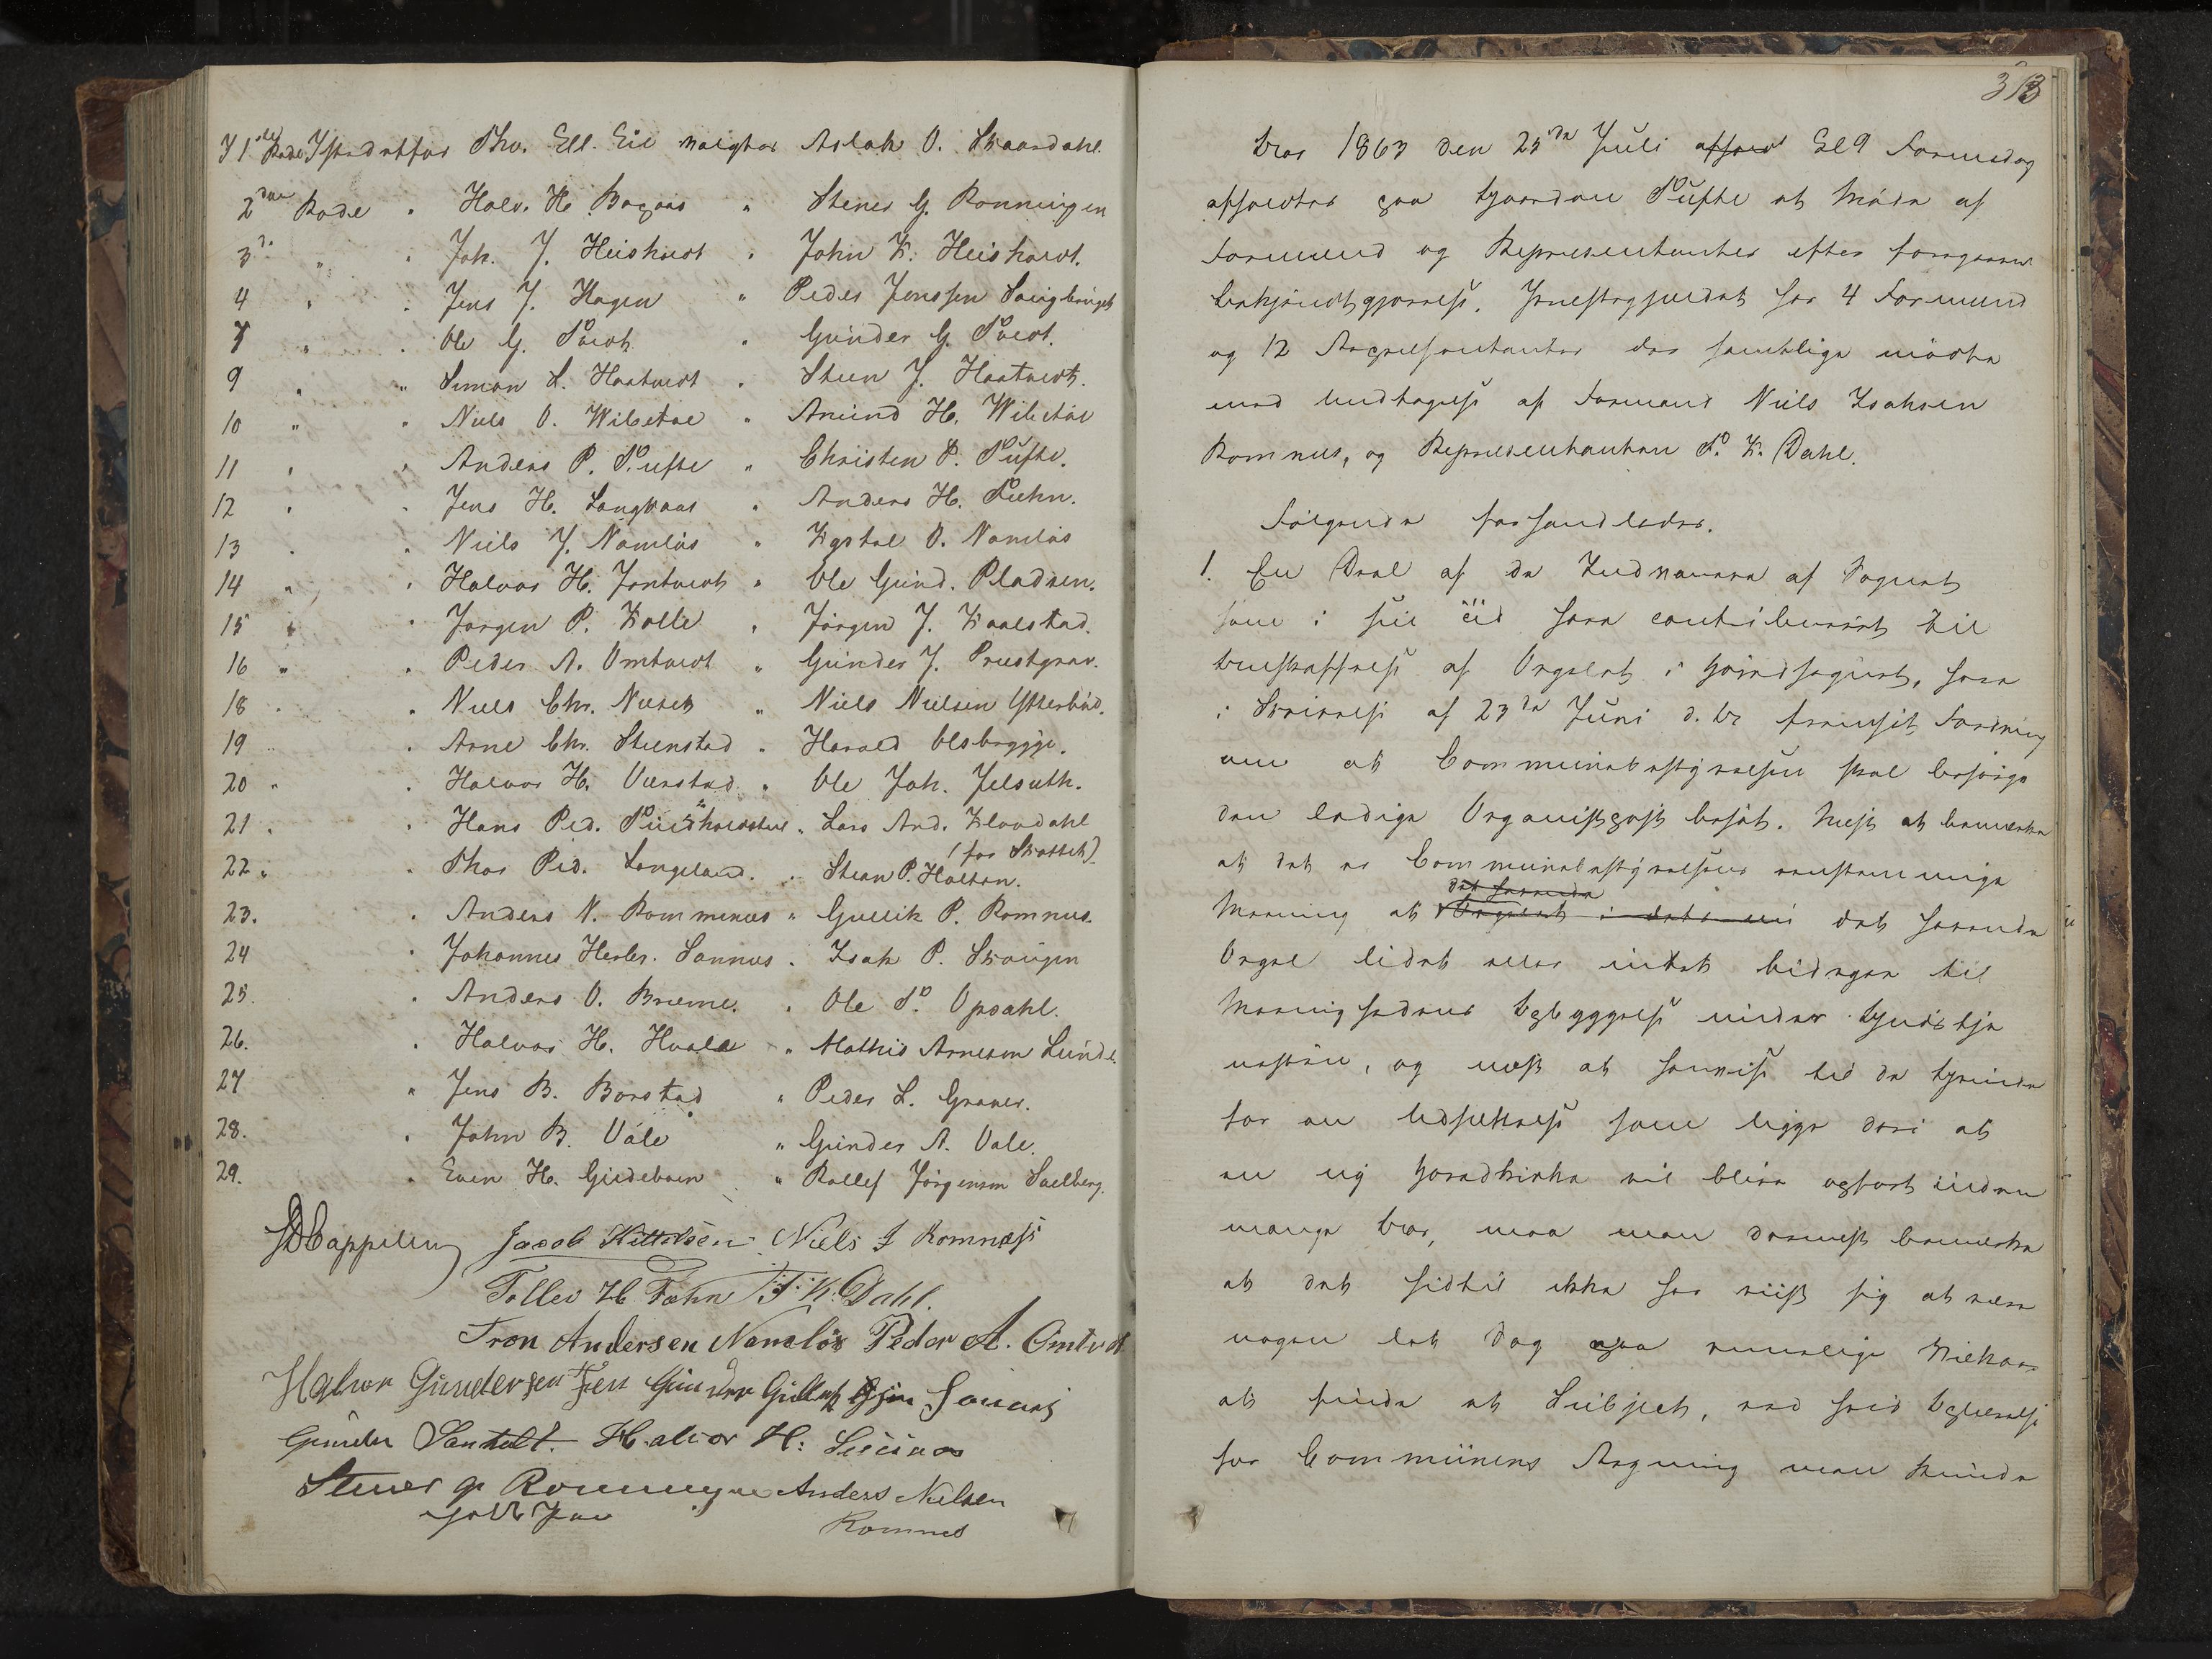 I 1ste Rode Istedetfor Tho. Ell. Eie valgtes Aslak O. Skaardahl
2den Rode " Halv. H. Bagaas " Stener G. Rønningen
3de " " Joh. J. Heiskvedt " John K. Heiskvedt.
4 " " Jens J. Hagen " Peder Jenssen
7 " " Ole G. Tvedt " Gunder G. Tvedt.
9 " " Simon L. Haatvedt " Steen J. Haatvedt.
10 " " Niels O. Wibetoe " Amund H. Wibetoe
11 " " Anders P. Tufte " Christen P. Tufte.
12 " " Jens H. Langkaas " Anders H. Tæhn.
13 " " Niels J. Namløs " Kystol O. Namløs
14 " " Halvor H. Jontvedt " Ole Gund. Pladsen.
15 " " Jørgen P. Kolle " Jørgen J. Kaalstad.
16 " " Peder A. Omtvedt " Gunder J. Præstgrav.
18 " " Niels Chr. " Niels Nielsen Ytterbøe.
19 " " Arne Chr. Steenstad " Harald Olsbrygge.
20 " " Halvor H. Verstad " Ole Joh. Jelseth.
21 " " Hans Ped. " Lars And. Klovdahl
(for Skottet)
22 " " Thor Ped. Langeland. " Stian P. Holtan.
23. " Anders N. Romnæs " Gullik P. Romnæs.
24 " Johannes Herbr. Sannæs " Isak P. Skougen
25. " Anders O. Bræme. " Ole T. Opdahl.
26. " Halvor H. Hvala " Mathis Arnesen Lunde.
27 " Jens B. Borstad " Peder L. Graver.
28. " John B. Vale " Gunder A. Vale.
29. " Even H. Gudeboen " Rollef Jørgensen Sælberg.
DCappelen Jacob Kittelsen Niels I Romnæss
Tollev H Tæhn T. K. Dahl.
Tron Andersen Namløs Peder A. Omtvet
Halvor Gundersen Gunder
Gunder Halvor H.
Stener G Rønningen Anders Nielsen
Romnes
313
Aar 1863 den 25de Juli afhol Kl 9 Formidag
afholdtes paa Gaarden Tufte et Møde af
Formænd og Repræsentanter efter foregaaende
bekjendtgjørelse. Indestaggjeldet har 4 Formænd
og 12 Repræsentanter der samtlige mødte
med Undtagelse af Formand Niels Isaksen
Romnes, og Repræsentanten T. K. Dahl.
Følgende forhandledes.
1. En Deel af de Indvaanere af Sognet
som i sin tid have contribueret til
anskaffelse af Orgelet i Hovedsognet, have
i Skrivelse af 23de Juni d. A. fremsat Fordring
om at Communebestyrelsen skal besørge
den ledige Organistpost besat. Næst at bemærke
at det er Communebestyrelsens eenstemmige
det havende
Meening at Orgelet i dets nu det havende
Orgel lidet eller intet bidrager til
Meenighedens Opbyggelse under Gudstje
nesten, og næst at henvise til de Grunde
for en Udsættelse som ligge deri at
en ny Hovedkirke vil blive opført inden
mange Aar, maa man dernæst bemærke
at det hidtil ikke har viist sig at være
nogen let Sag paa rimelige Vilkaar
at finde et Subject, ved hvis Oplærelse
for Communens Regning man kunde